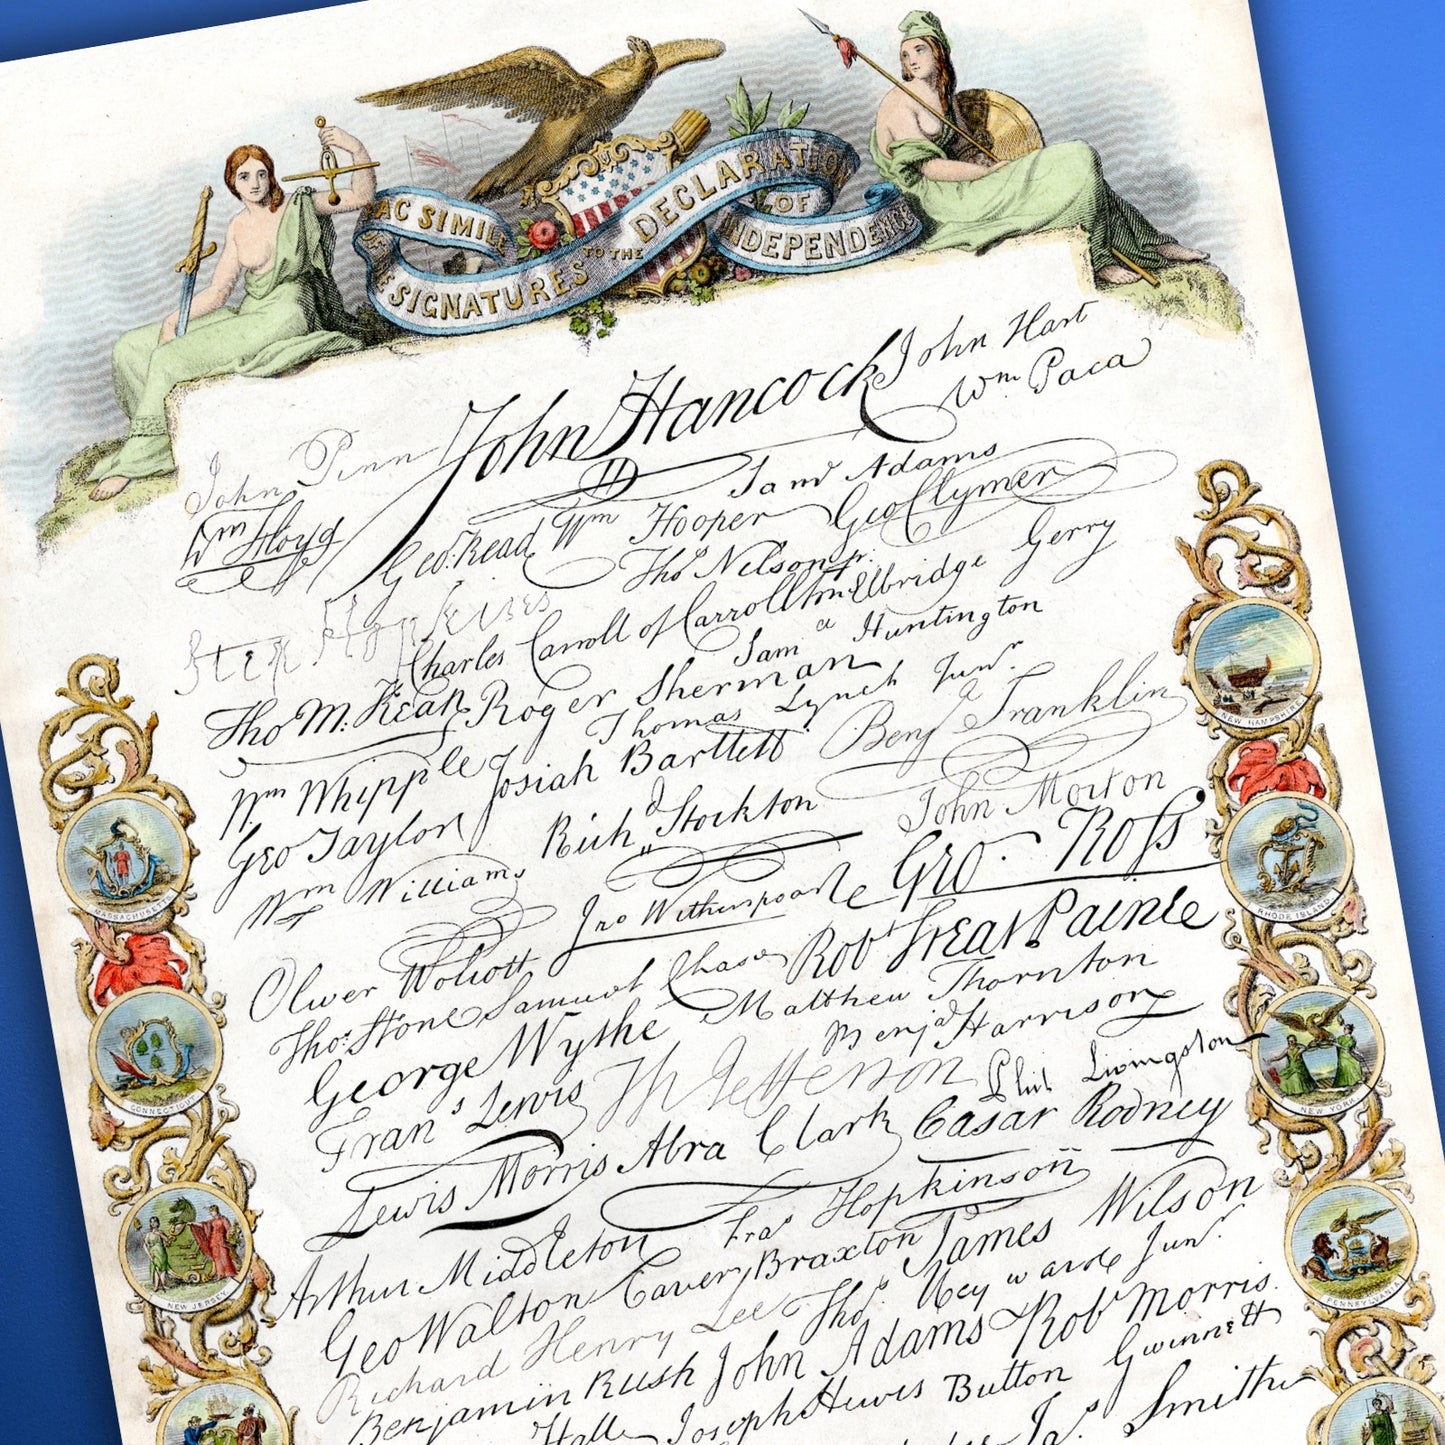 FAC SIMILE
OF THE SIGNATURES TO THE DECLARATION
OF
INDEPENDENCE
John Hancock
John Hart
Wm Paca
John Penn
Wm Floyd
Saml Adams
Geo Clymer
Geo. Read
Wm Hooper
Thos Nelson jr.
Elbridge Gerry
Step Hopkins
Charles Carroll of Carrollton
Saml Huntington
Tho M. Kean
Roger Sherman
Thomas Lynch Junr.
Benj Franklin
Wm Whipple
Josiah Bartlett
John Morton
Geo Taylor
Richd Stockton
Geo. Ross
Wm Williams
Jno Witherspoon
Robt Treat Paine
Oliver Wolcott
Samuel Chase
Matthew Thornton
Thos. Stone
George Wythe
Benja Harrison
Frans Lewis
Th Jefferson
Phil Livingston
Lewis Morris
Abra Clark
Cæsar Rodney
Arthur Middleton
Fras Hopkinson
James Wilson
Geo Walton
Carter Braxton
Richard Henry Lee
Thos Heyward Junr.
Benjamin Rush
John Adams
Robt Morris
Hall
Joseph Hewes
Button Gwinnett
Jas. Smith
NEW HAMPSHIRE
MASSACHUSETTS
RHODE ISLAND
CONNECTICUT
NEW YORK
NEW JERSEY
PENNSYLVANIA